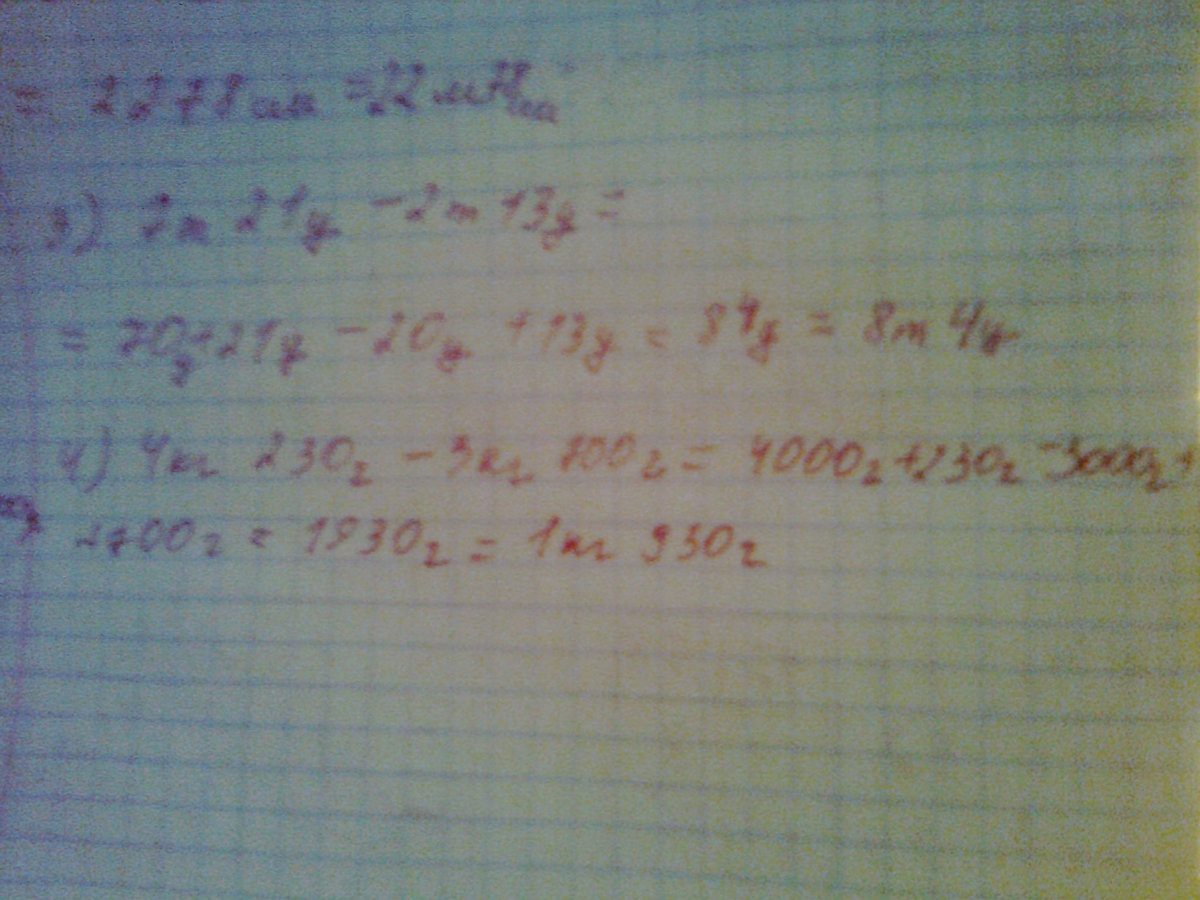 = 2278 см = 22 м 78 см
3) 7т 21ц - 2т 13ц =
= 70ц+21ц - 20ц + 13ц = 84ц = 8т 4ц
4) 4кг 230г - 3кг 700г = 4000г+230г-3000г+
+700г = 1930г = 1кг 930г